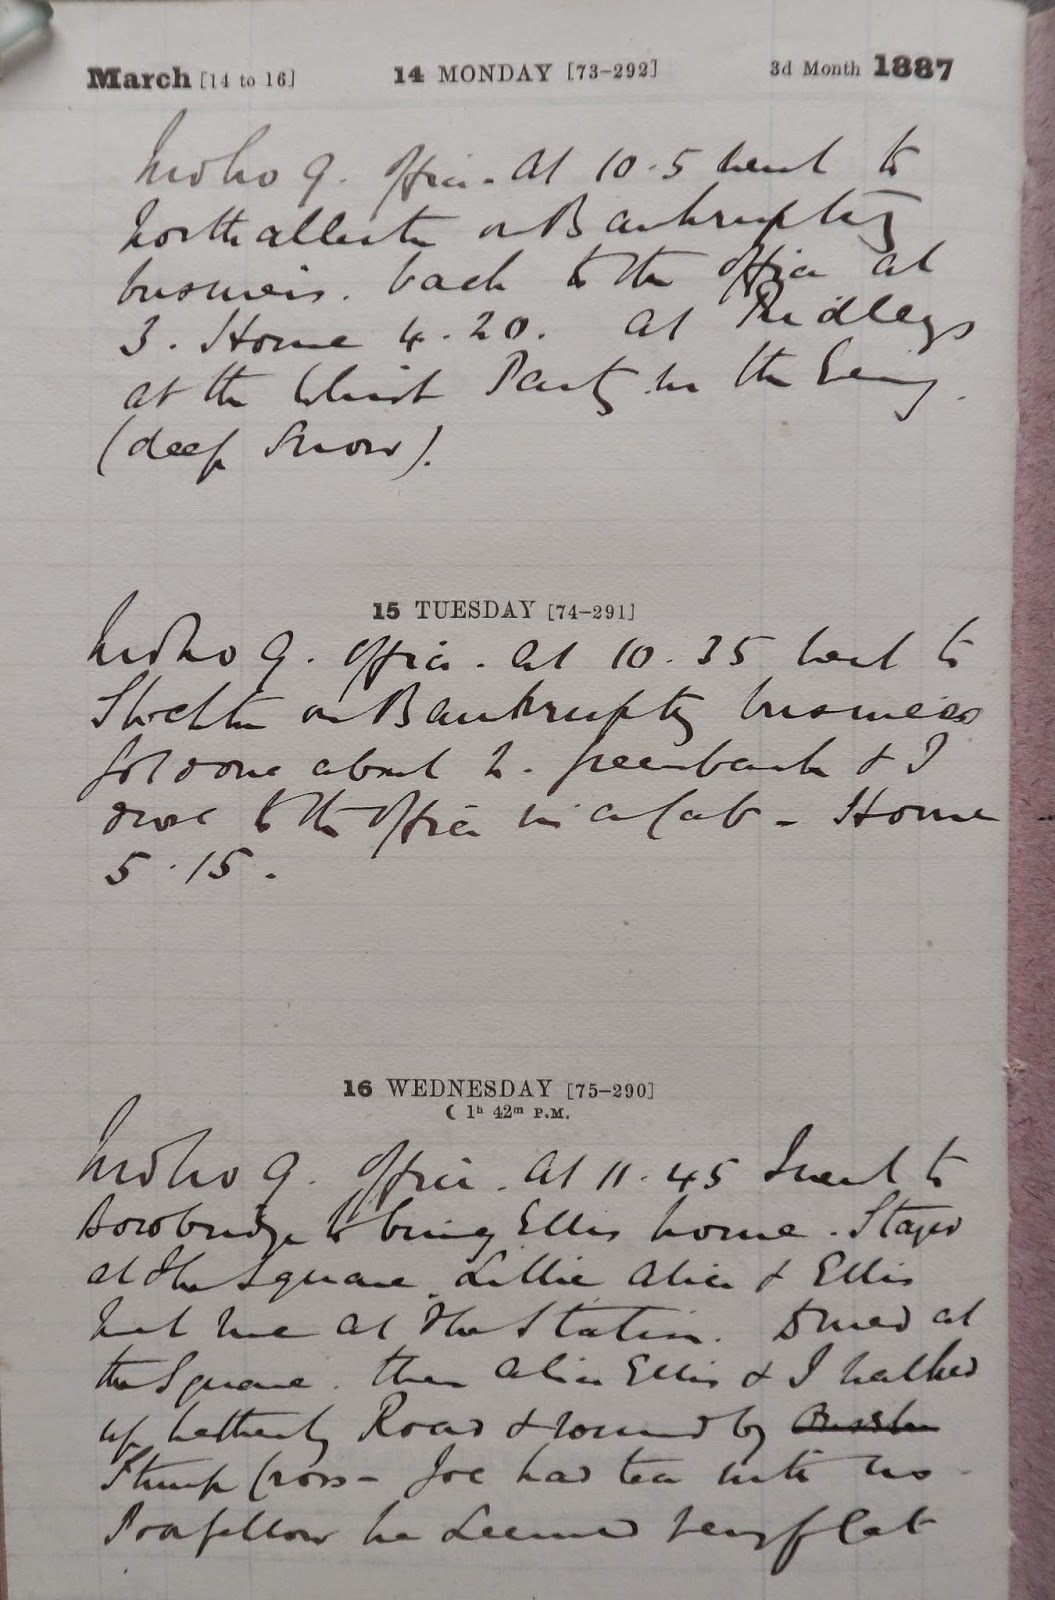 March [14 to 16] 14 MONDAY [73-292] 3d Month 1887
9. Office. At 10.5 went to
Northallerton on Bankruptcy
business. back to the office at
3. Home 4.20. At Ridleys
at the Whist Party in the Evening.
(deep Snow).
15 TUESDAY [74-291]
9. Office. At 10.35 went to
Stockton on Bankruptcy business
got done about 2. Greenbank & I
drove to the Office in a Cab - Home
5.15.
16 WEDNESDAY [75-290]
☾ 1h 42m P.M.
9. Office. At 11.45 I went to
Borobridge to bring Ellis home. Stayed
at the Square. Lillie Alice & Ellis
met me at the Station. Dined at
the Square. then Alice Ellis & I walked
up Road & round by
Stump Cross - Joe had tea with us -
Poor fellow he seemed very flat